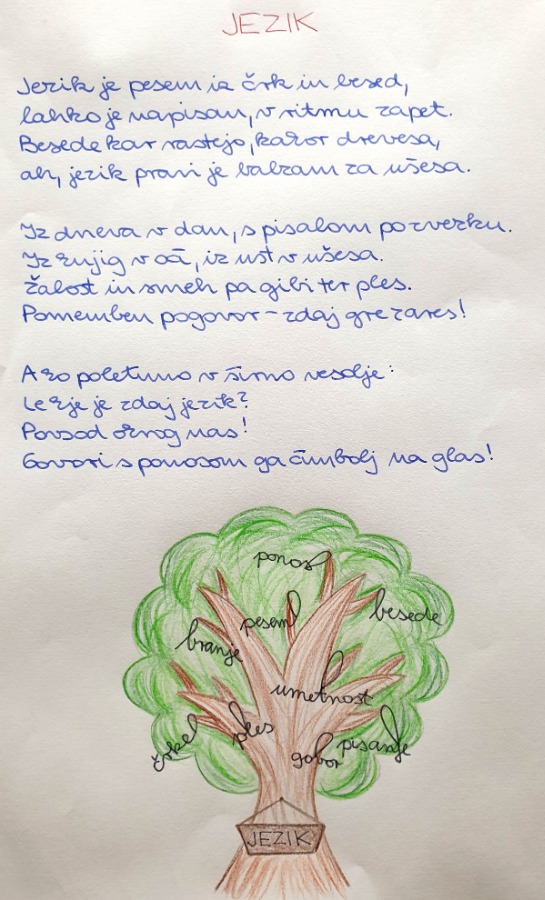 JEZIK
Jezik je pesem iz črk in besed,
lahko je napisan, v ritmu zapet.
Besede kar rastejo, kakor drevesa,
ah, jezik pravi je balzam za ušesa.
Iz dneva v dan, s pisalom po zvezku.
Iz knjig v oči, iz ust v ušesa.
Žalost in smeh pa gibi ter ples.
Pomemben pogovor - zdaj gre zares!
A ko poletimo v širno vesolje:
Le kje je zdaj jezik?
Povsod okrog nas!
Govori s ponosom ga čimbolj na glas!
ponos
pesem
besede
branje
umetnost
ples
pisanje
govor
JEZIK